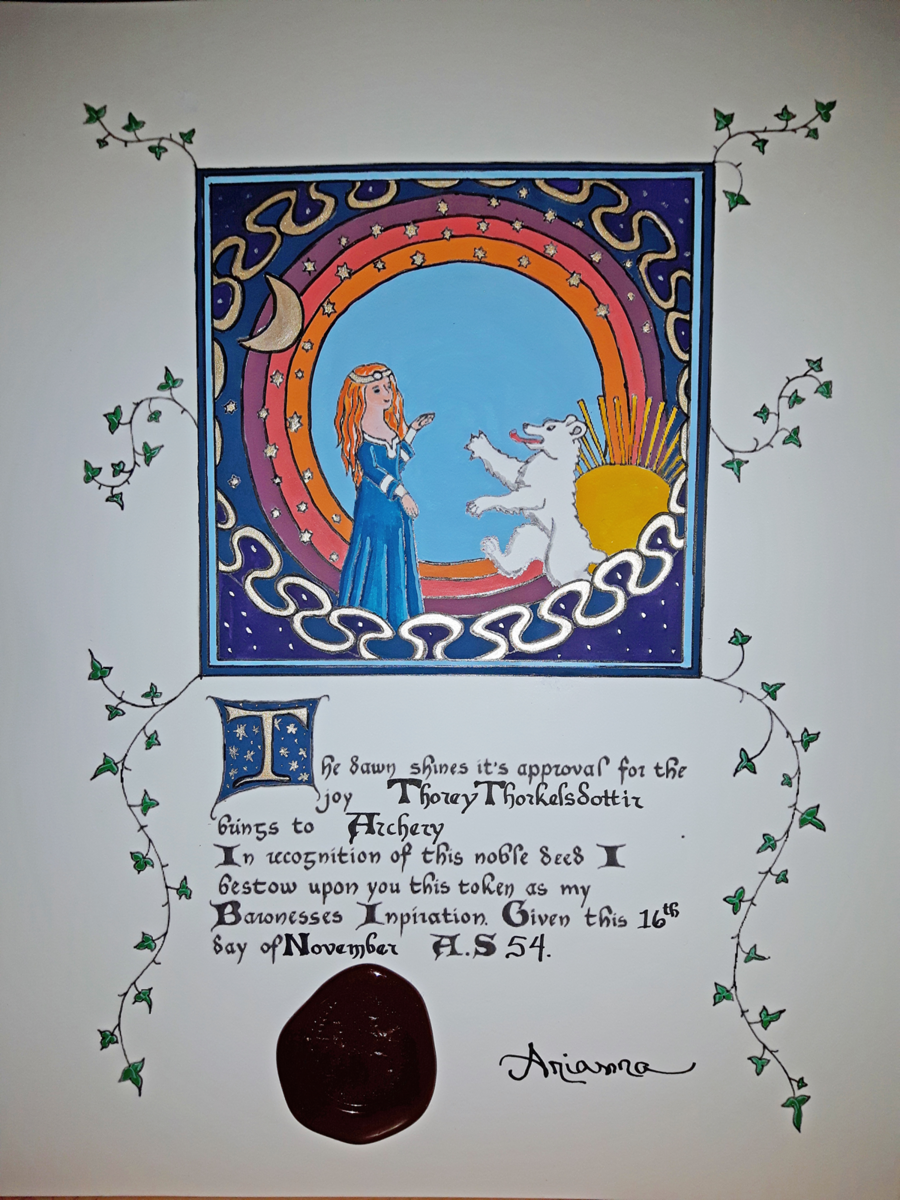 The dawn shines it's approval for the
joy Thorey Thorkelsdottir
brings to Archery
In recognition of this noble deed I
bestow upon you this token as my
Baronesses Inpiration. Given this 16th
day of November A.S 54.
Arianna